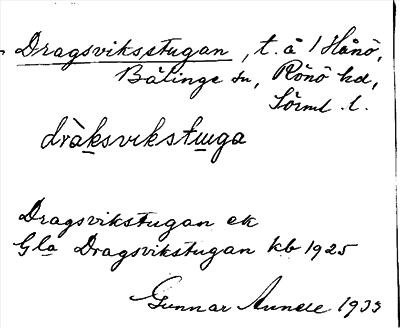 Dragsviksstugan, t. å 1 Hånö,
Bälinge sn, Rönö hd,
Sörml. l.
dràksvikstuuga
Dragsvikstugan ek
Gla Dragsvikstugan kb 1925
Gunnar Annell 1933